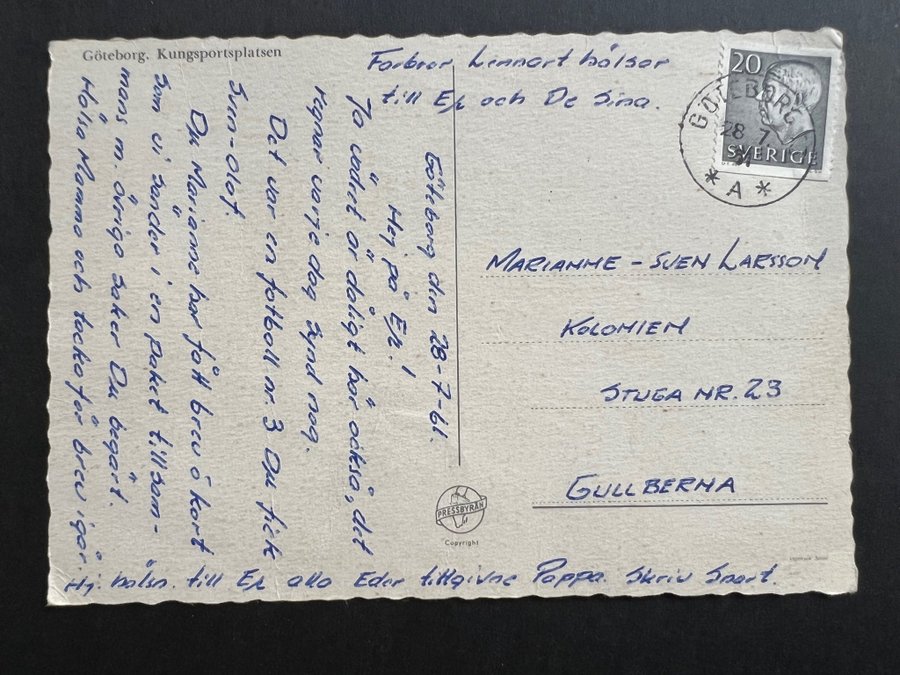 Göteborg. Kungsportsplatsen
Farbror Lennart hälsar
till Er och De Sina.
Göteborg den 28-7-61.
Hej på Er. !
Ja vädret är dåligt här också, det
regnar varje dag synd nog.
Det var en fotboll nr. 3 Du fick
Sven-Olof.
Du Marianne har fått brev o kort
som vi sänder i en paket tillsam-
mans m. övriga saker Du begärt.
Hälsa Mamma och tacka för brev igår.
Hj. hälsn. till Er alla Eder tillgivne Pappa. Skriv Snart.
20
SVERIGE
GÖTEBORG
28 7
61
* A *
MARIANNE - SVEN LARSSON
KOLONIEN
STUGA NR. 23
GULLBERNA
PRESSBYRÅN
Copyright